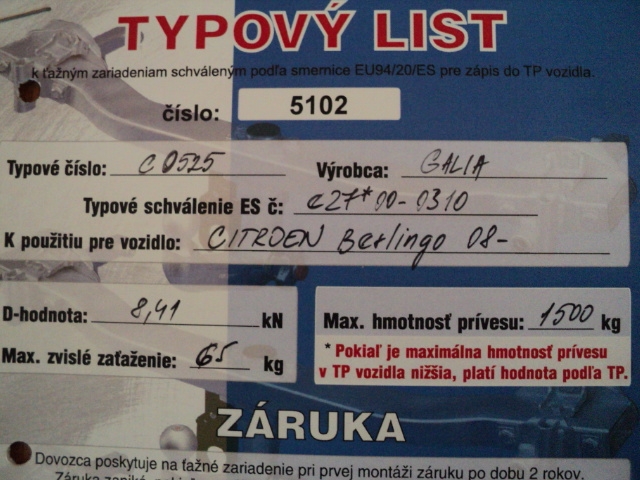 TYPOVÝ LIST
k ťažným zariadeniam schváleným podľa smernice EU94/20/ES pre zápis do TP vozidla.
číslo: 5102
Typové číslo: C0525 Výrobca: GALIA
Typové schválenie ES č: e27*00-0310
K použitiu pre vozidlo: CITROEN Berlingo 08-
D-hodnota: 8,41 kN Max. hmotnosť prívesu: 1500 kg
Max. zvislé zaťaženie: 65 kg
* Pokiaľ je maximálna hmotnosť prívesu
v TP vozidla nižšia, platí hodnota podľa TP.
ZÁRUKA
Dovozca poskytuje na ťažné zariadenie pri prvej montáži záruku po dobu 2 rokov.
Záruka